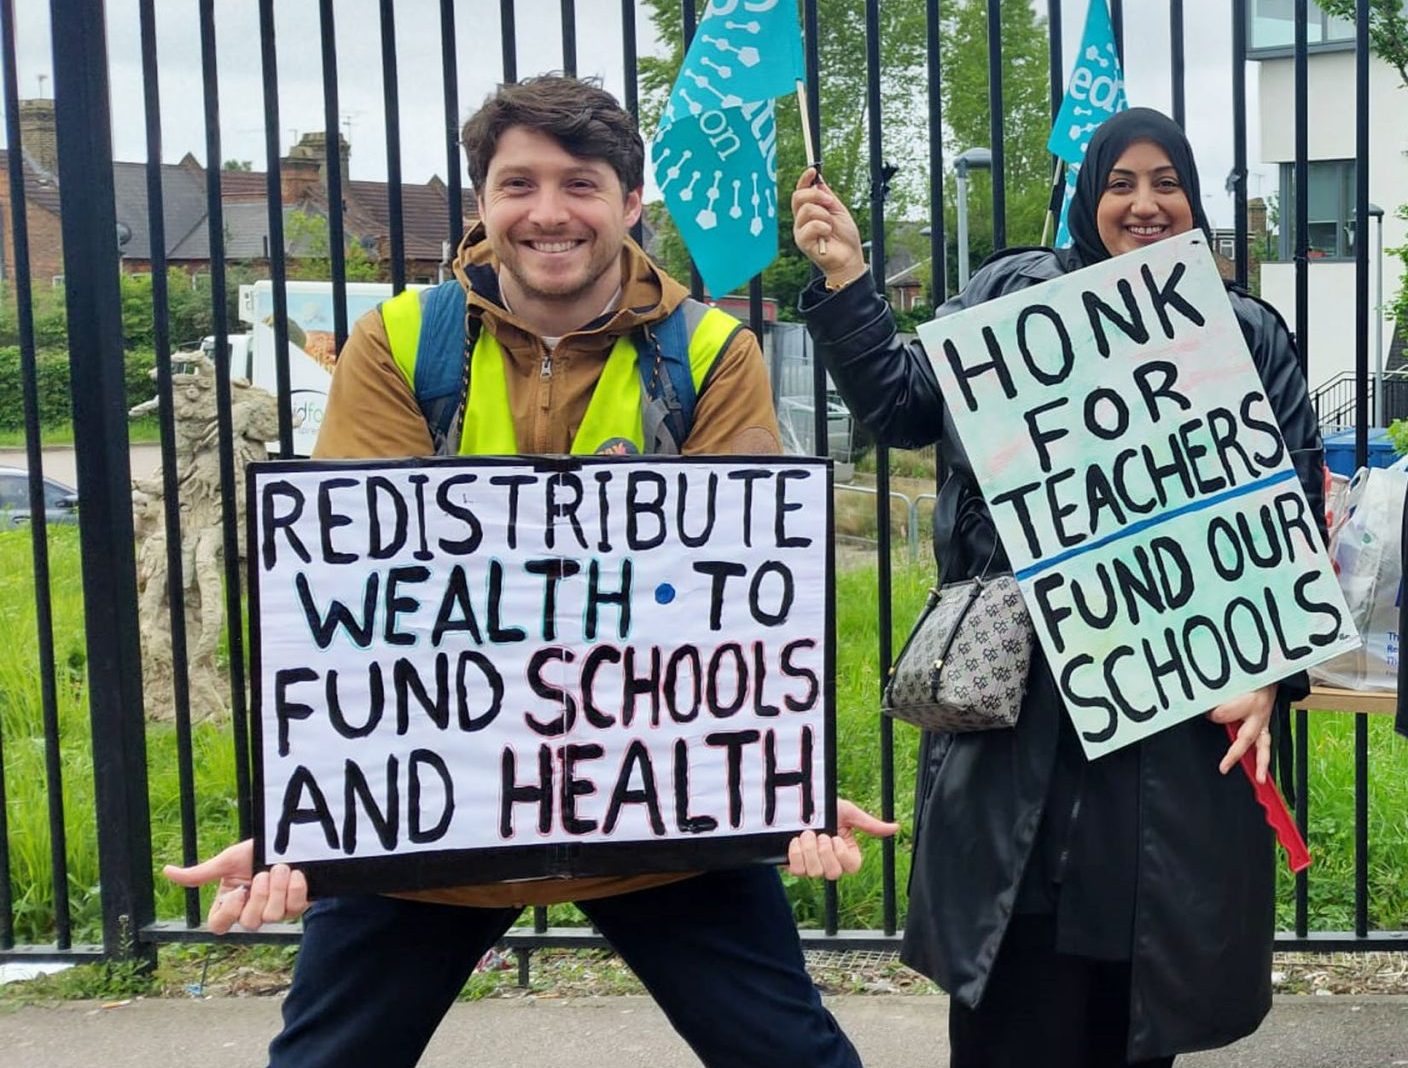 REDISTRIBUTE
WEALTH • TO
FUND SCHOOLS
AND HEALTH
HONK
FOR
TEACHERS
FUND OUR
SCHOOLS
on
edu